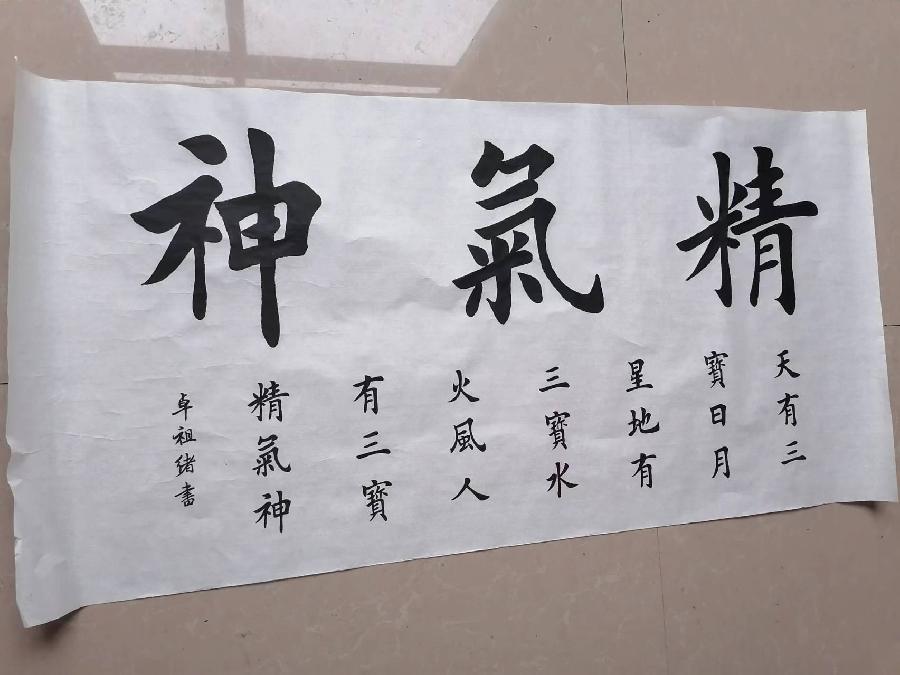 精氣神
天有三
寶日月
星地有
三寶水
火風人
有三寶
精氣神
卓祖緒書